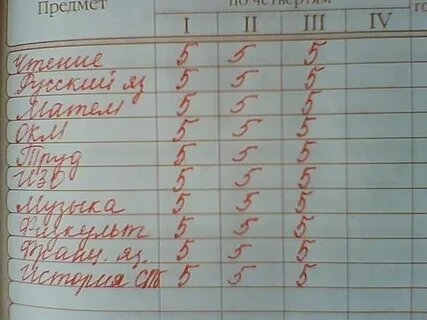 Предмет по четвертям го
I II III IV
Чтение 5 5 5
Русский яз 5 5 5
Матем 5 5 5
ОКМ 5 5 5
Труд 5 5 5
ИЗО 5 5 5
Музыка 5 5 5
Физкульт 5 5 5
Франц. яз. 5 5 5
История СПб 5 5 5